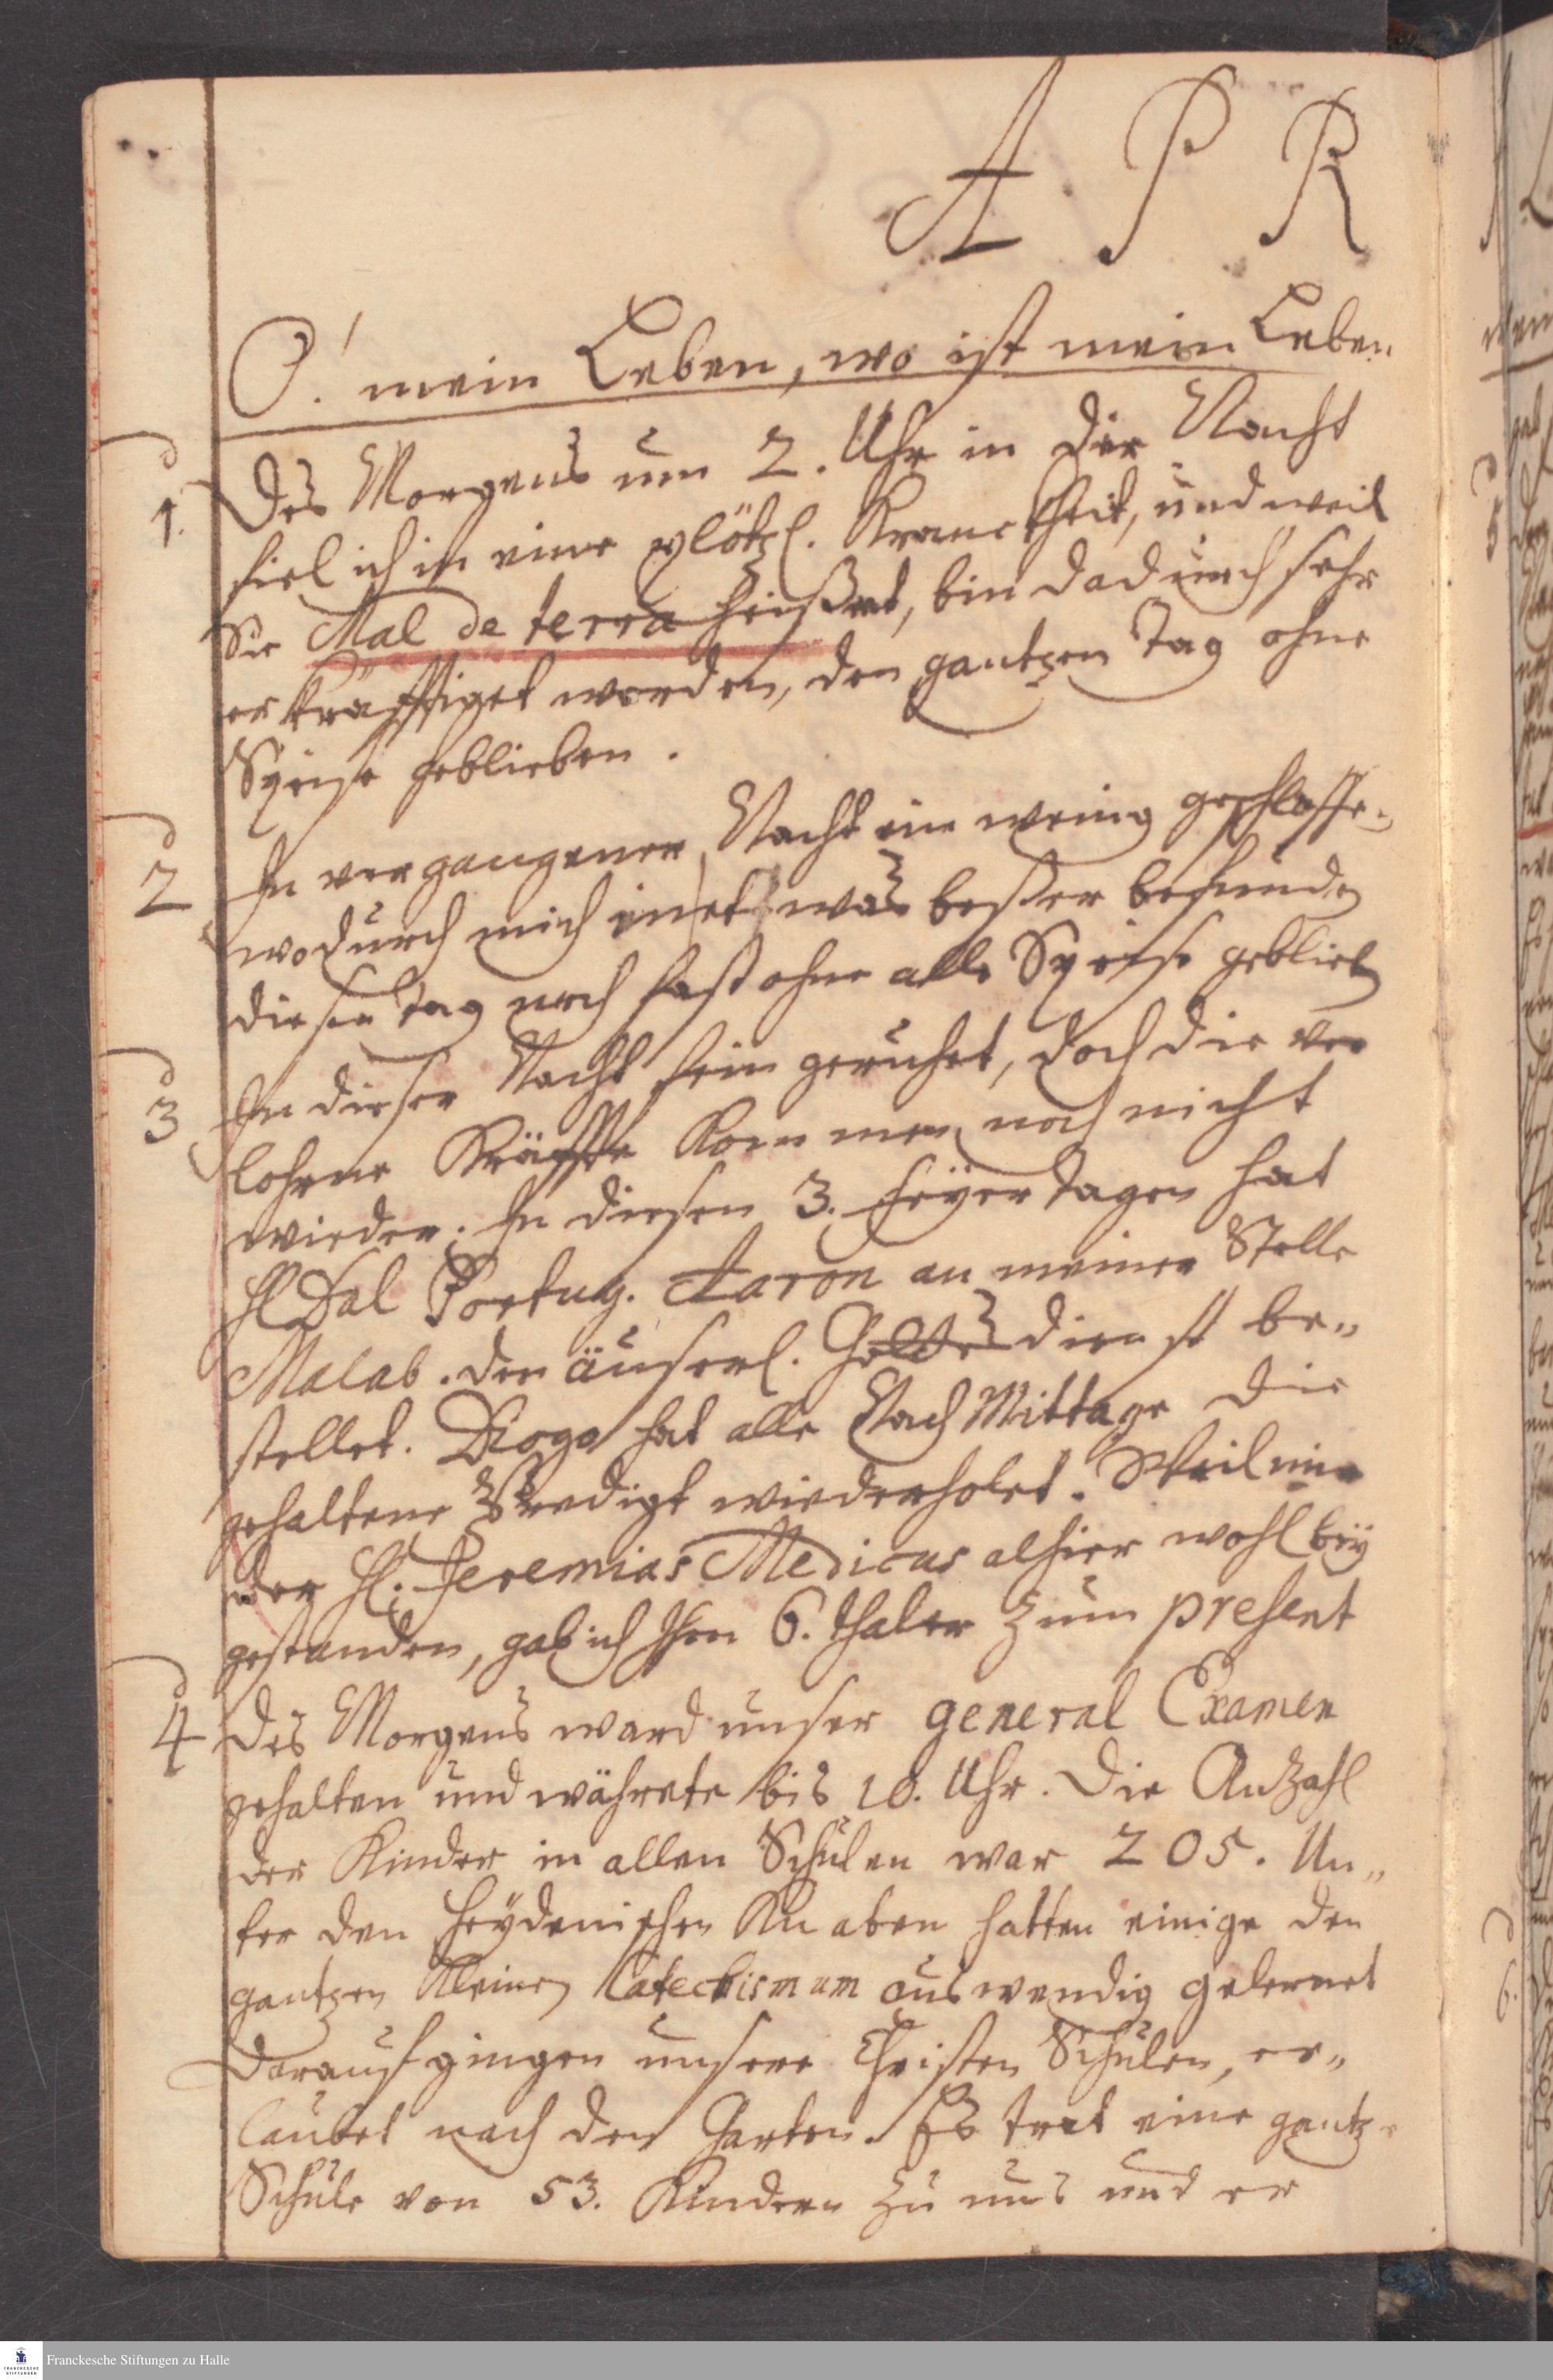 A P R
O! mein Leben, wo ist mein Leben
d
1. Des Morgens um 2. Uhr in der Nacht
fiel ich in eine plötzl. Kranckheit, und weil
Sie Mal de terra heisset, bin dadurch sehr
entkräfftiget worden, den gantzen Tag ohne
Speise geblieben.
d
2 In vergangener Nacht ein wenig geschlaffen
wodurch mich in etwas besser befunden
diesen Tag noch fast ohne alle Speise geblieben
d
3 In dieser Nacht fein geruhet, doch die ver
lohrne Kräffte kommen noch nicht
wieder. In diesen 3. Feyertagen hat
H Dal Portug. Aaron an meiner Stelle
Malab. den äuserl. Gottesdienst be„
stellet. Diogo hat alle NachMittage die
gehaltene Predigt wiederholet. Weil mir
der H. Jeremias Medicus alhier wohl bey
gestanden, gab ich Ihm 6. thaler zum present
d
4 Des Morgens ward unser general Examen
gehalten und währete bis 10. Uhr. Die Anzahl
der Kinder in allen Schulen war 205. Un„
ter den Heydenischen Knaben hatten einige den
gantzen Kleinen Catechismum auswendig gelernet
Darauf gingen unsere Christen Schulen, er„
laubet nach den Garten. Es trat eine gantze
Schule von 53. Kindern zu uns und er
Franckesche Stiftungen zu Halle